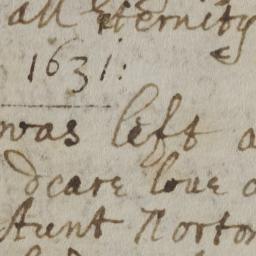 all Eternity
1631:
was left a
deare loue o
Aunt Norton